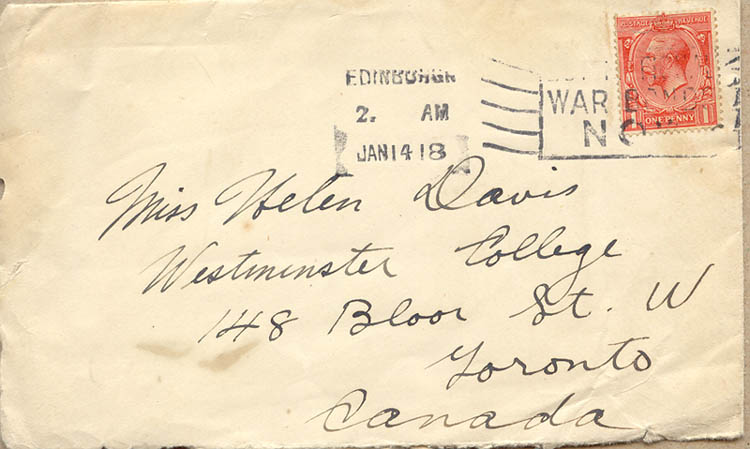 POSTAGE REVENUE
ONE PENNY
EDINBURGH
2. AM
JAN 14 18
WAR
Miss Helen Davis
Westminster College
148 Bloor St. W
Toronto
Canada